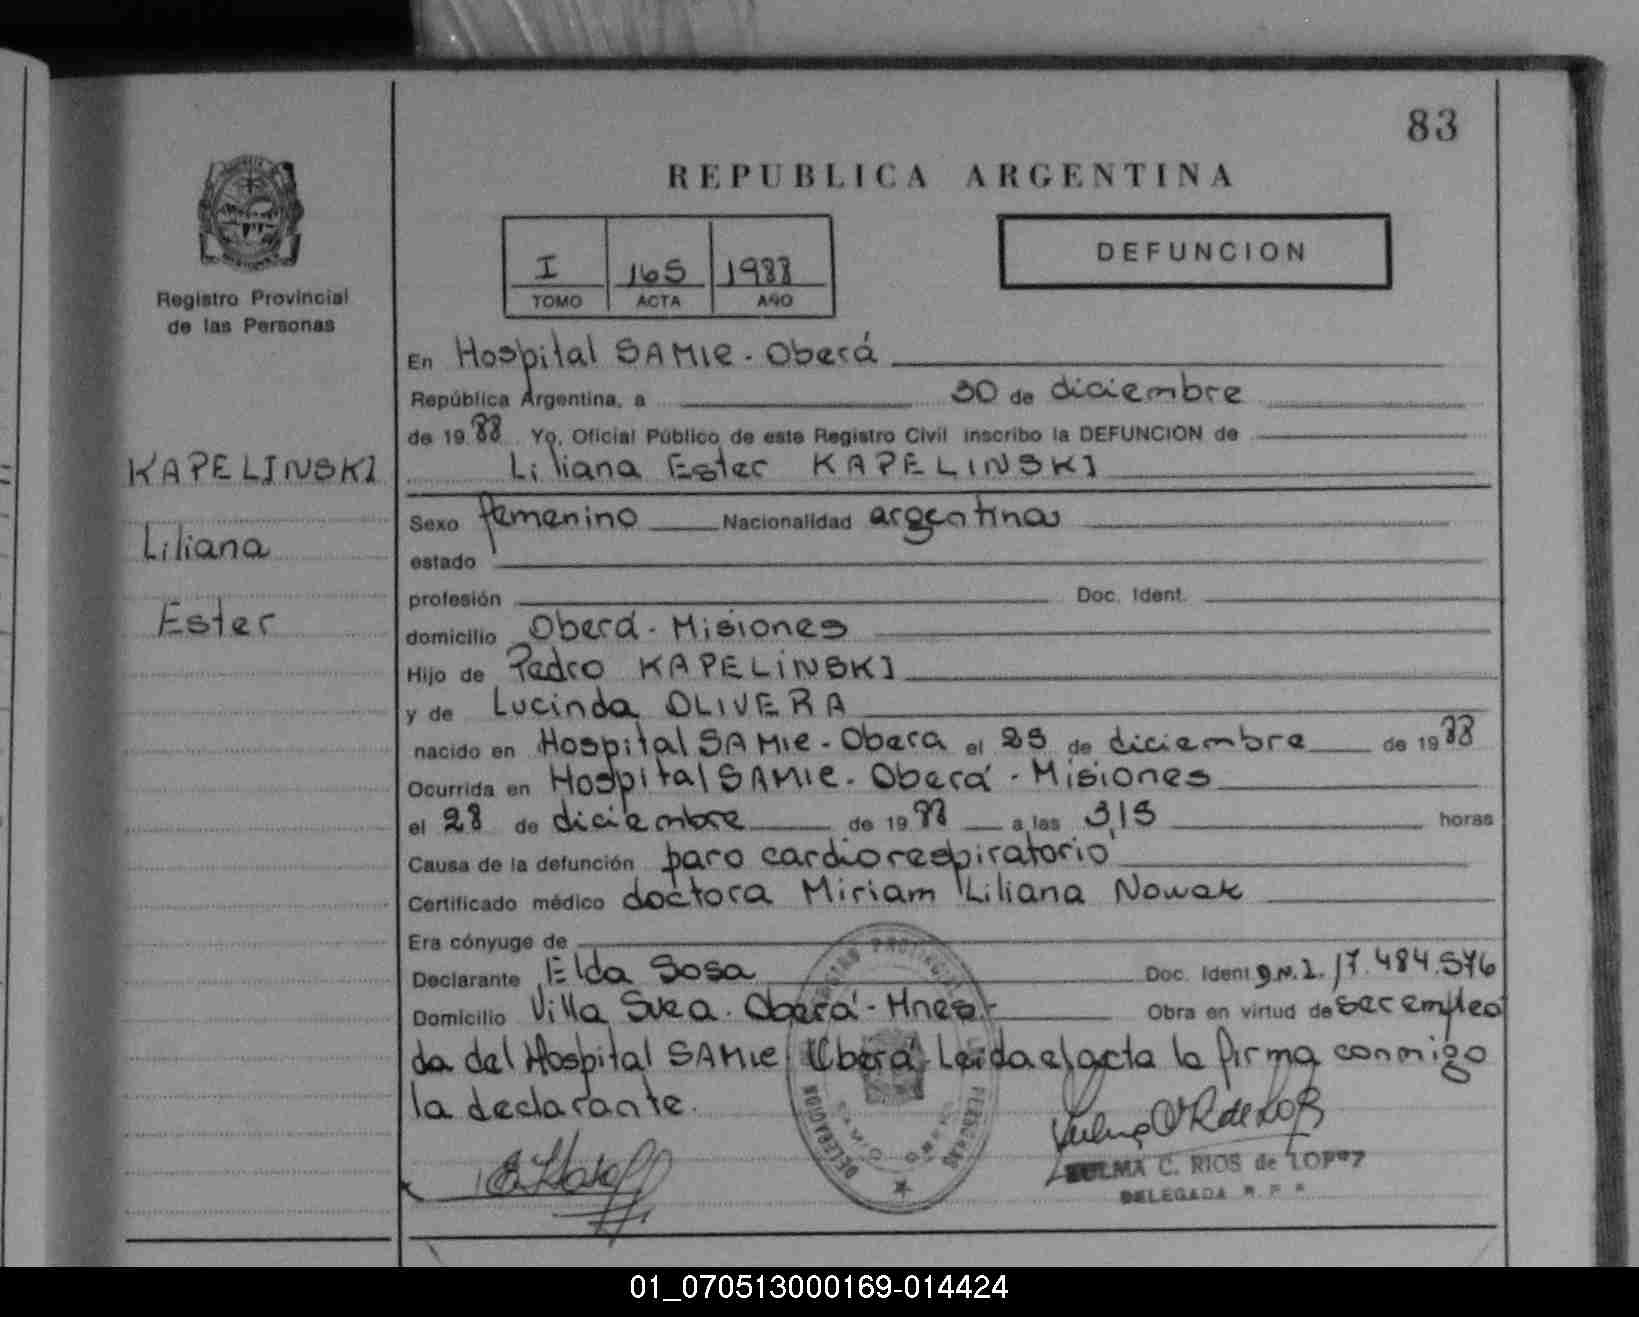 83
REPUBLICA ARGENTINA
I 165 1988
TOMO ACTA AÑO
DEFUNCION
Registro Provincial
de las Personas
KAPELINSKI
Liliana
Ester
En Hospital SAMIC - Oberá
República Argentina, a 30 de diciembre
de 1988 Yo, Oficial Público de este Registro Civil inscribo la DEFUNCION de
Liliana Ester KAPELINSKI
Sexo femenino Nacionalidad argentina
estado
profesión Doc. Ident.
domicilio Oberá - Misiones
Hijo de Pedro KAPELINSKI
y de Lucinda OLIVERA
nacido en Hospital SAMIC - Oberá el 25 de diciembre de 1988
Ocurrida en Hospital SAMIC - Oberá - Misiones
el 28 de diciembre de 1988 a las 3,15 horas
Causa de la defunción paro cardiorespiratorio
Certificado médico doctora Miriam Liliana Nowak
Era cónyuge de
Declarante Elda Sosa Doc. Ident. D.N.I. 17.484.576
Domicilio Villa Svea - Oberá - Mnes - Obra en virtud de ser emplea
da del Hospital SAMIC Oberá - Leida el acta la firma conmigo
la declarante.
ZULMA C. RIOS de LOPEZ
DELEGADA R. P. P.
01_070513000169-014424